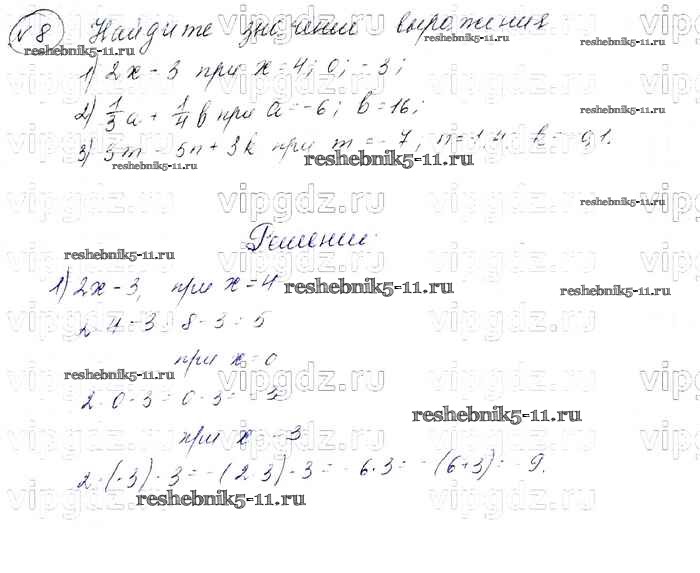 №8 Найдите значение выражения
1) 2x - 3 при x = 4; 0; -3;
2) 1/3 a + 1/4 b при a = -6; b = 16;
3) 3m - 5n + 3k при m = -7; n = 1,4 k = -0,1.
Решение
1) 2x - 3, при x = 4
2·4 - 3 = 8 - 3 = 5
при x = 0
2·0 - 3 = 0 - 3 = -3
при x = -3
2·(-3) - 3 = -(2·3) - 3 = -6 - 3 = -(6+3) = -9.
vipgdz.ru
reshebnik5-11.ru